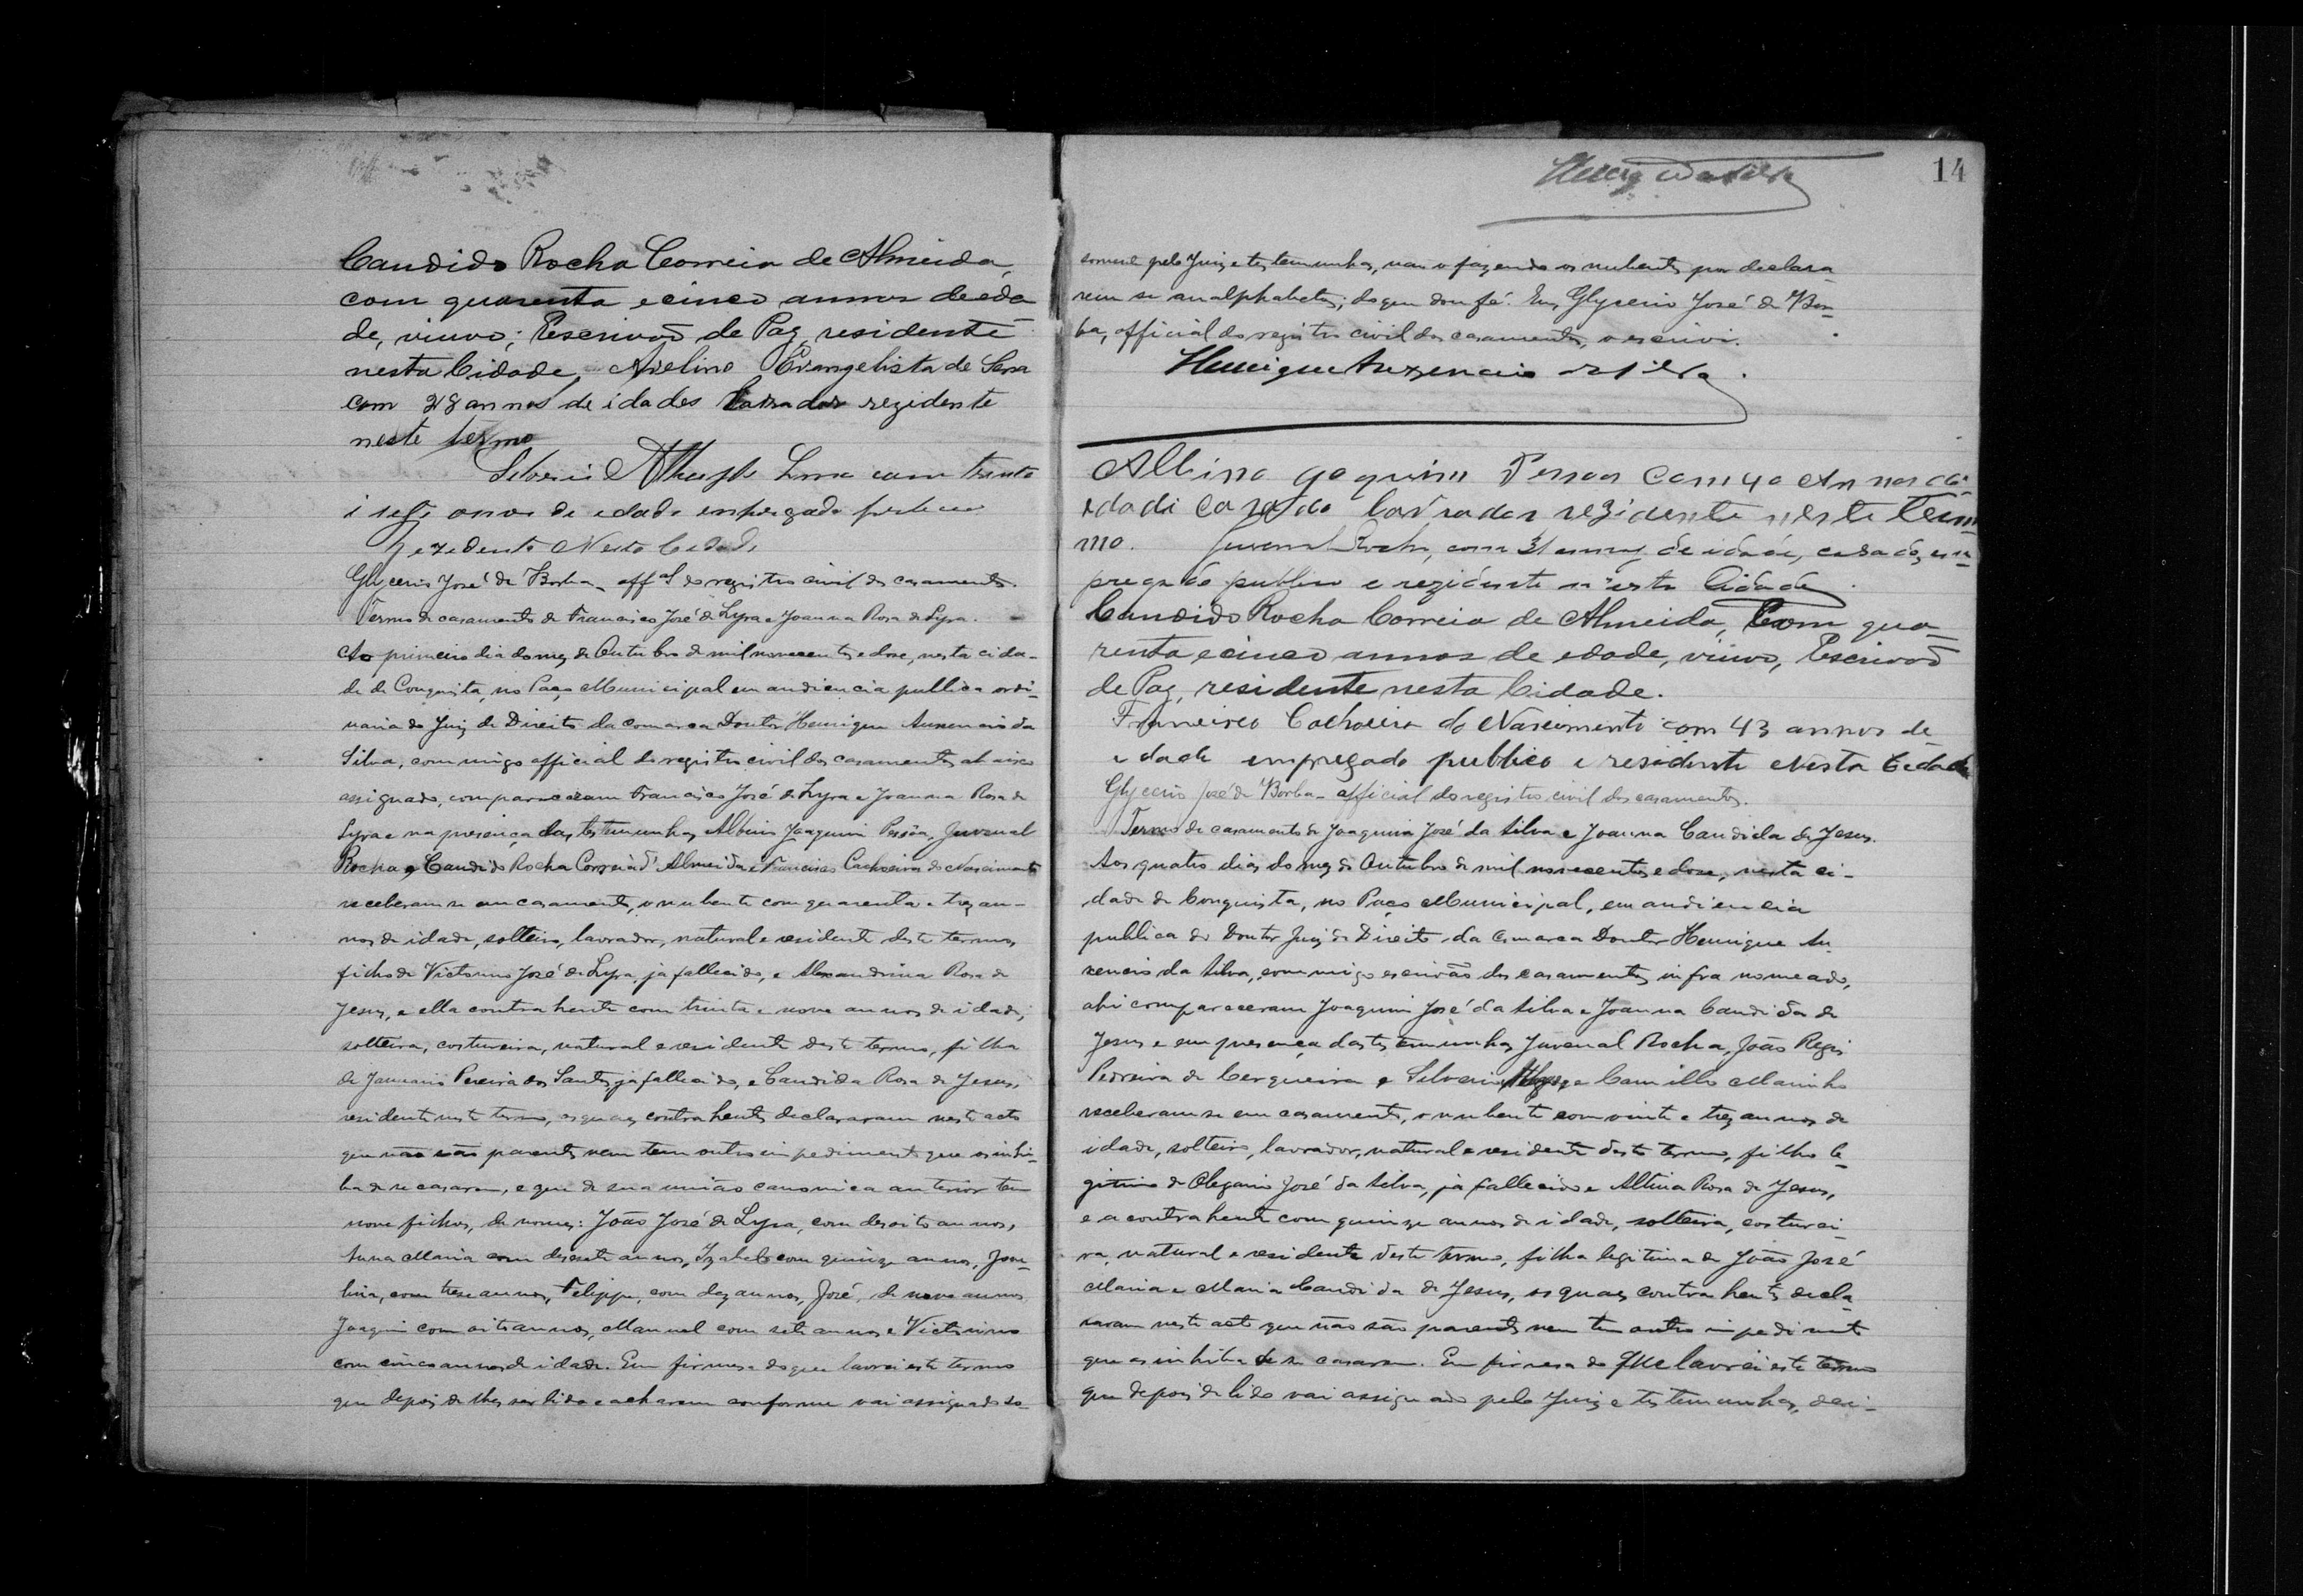 Candido Rocha Correia de Almeida,
com quarenta e cinco annos de eda
de, viuvo; Escrivaõ de Paz, residente
nesta Cidade, Avelino Evangelista de Sena
com 28 annos de idades lavrador rezidente
neste termo
Silverio Lima com trinta
i sete anos de edade empregado
Rezidente Nesta Cidade
Glycerio José de Borba, offal do registro civil dos casamentos.
Termo de casamento de Francisco José de Lyra e Joanna Rosa de Lyra.
Ao primeiro dia do mez de Outubro de mil novecentos e dose, nesta cida-
de de Conquista, no Paço Municipal em audiencia publica ordi-
naria do Juiz de Direito da comarca Doutor Henrique Auxencio da
Silva, commigo official do registro civil dos casamentos abaixo
assignado, compareceram Francisco José de Lyra e Joanna Rosa de
Lyra e na presença das testemunhas Albino Joaquim Pessôa, Juvenal
Rocha, Candido Rocha Correia d'Almeida e Francisco Cachoeira do Nascimento
receberam se em casamento, o nubente com quarenta e trez an-
nos de idade, solteiro, lavrador, natural e residente deste termo,
filho de Victorino José de Lyra, ja fallecido, e Alexandrina Rosa de
Jesus, e ella contrahente com trinta e nove annos de idade,
solteira, costureira, natural e residente deste termo, filha
de Januario Pereira dos Santos, ja fallecido, e Candida Rosa de Jesus,
residente neste termo, os quaes contrahentes declararam neste acto
que não são parentes nem tem outro impedimento que os inhi-
ba de se casarem, e que de sua união canonica anterior tem
nove filhos, de nomes: João José de Lyra, com desoito annos,
Anna Maria com desesete annos, Izabel com quinze annos, Jove-
lina, com trese annos, Felippe, com dez annos, José, de nove annos
Joaquim com oito annos, Manuel com sete annos e Victorino
com cinco annos de idade. Em firmesa do que lavrei este termo
que depois de lhes ser lido e acharem conforme vai assignado so-
14
somente pelo Juiz e testemunhas, nao o fazendo os nubentes por declara
rem se analphabetos; do que dou fé. Eu, Glycerio José de Bor-
ba, official do registro civil dos casamentos, o escrivi.
Henrique Auxencio da Silva.
Albino Joaquim Pessoa com 40 Annos de
edade casado lavrador rezidente neste term
mo. Juvenal Rocha, com 31 annos de idade, casado, em-
pregado publico e rezidente n'esta Cidade.
Candido Rocha Correia de Almeida, Com qua-
renta e cinco annos de edade, viuvo, Escrivaõ
de Paz, residente nesta Cidade.
Francisco Cachoeira do Nascimento com 43 annos de
edade empregado publico e residente Nesta Cidade
Glycerio José de Borba - official do registro civil dos casamentos.
Termo de casamento de Joaquim José da Silva e Joanna Candida de Jesus.
Aos quatro dias do mez de Outubro de mil novecentos e dose, nesta ci-
dade de Conquista, no Paço Municipal, em audiencia
publica do Doutor Juiz de Direito da comarca Doutor Henrique Au
xencio da Silva, commigo escrivão dos casamentos infra nomeado,
ahi compareceram Joaquim José da Silva e Joanna Candida de
Jesus e em presença das testemunhas Juvenal Rocha, João Regis
Pereira de Cerqueira e Silverio e Camillo Marinho
receberam se em casamento, o nubente com vinte e trez annos de
idade, solteiro, lavrador, natural e residente deste termo, filho le-
gitimo de Olegario José da Silva, já fallecido e Altina Rosa de Jesus,
e a contrahente com quinze annos de idade, solteira, costurei-
ra, natural e residente deste termo, filha legitima de João José
Maria e Maria Candida de Jesus, os quaes contrahentes decla-
raram neste acto que não são parentes nem tem outro impedimento
que os inhiba de se casarem. Em firmesa do que lavrei este termo
que depois de lido vai assignado pelo Juiz e testemunhas, dei-